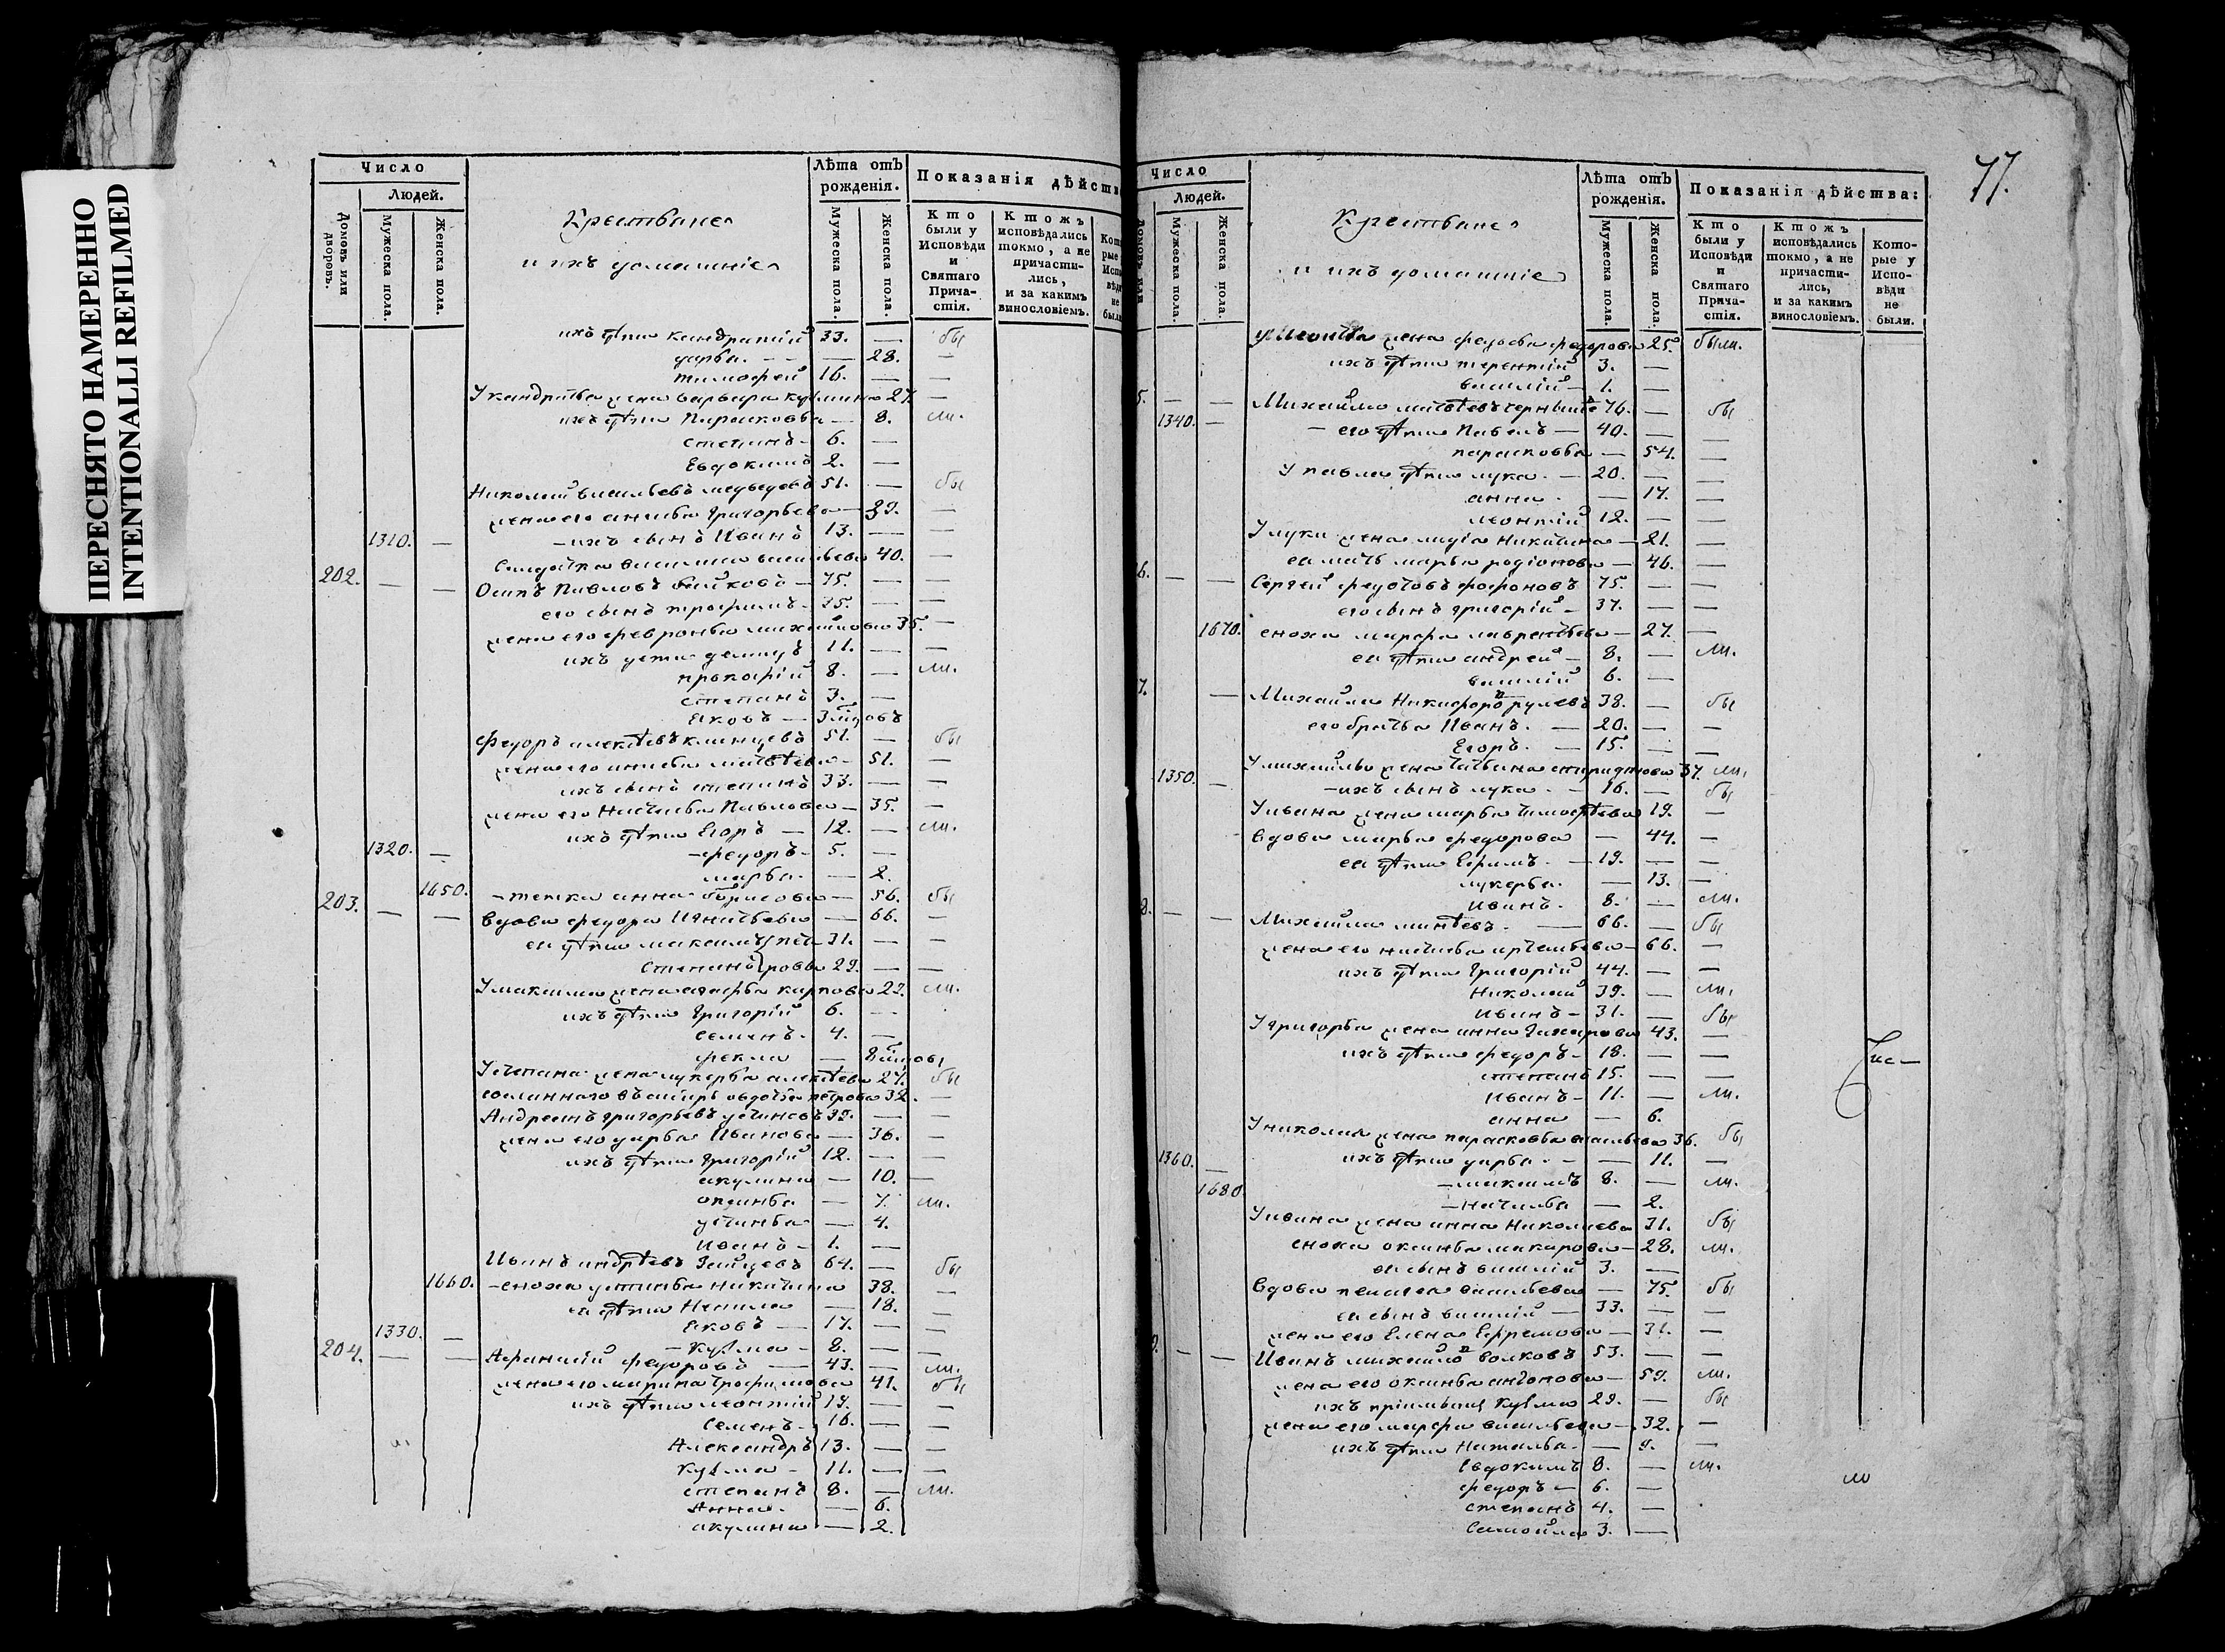 ПЕРЕСНЯТО НАМЕРЕННО
INTENTIONALLI REFILMED
Число
Людей.
Домовъ или дворовъ.
Мужеска пола.
Женска пола.
Крестьяне
и ихъ домашніе
Лѣта отъ рожденія.
Мужеска пола.
Женска пола.
Показанія дѣйств
Кто были у Исповѣди и Святаго Прича-стія.
Ктожъ исповѣдались токмо, а не причасти-лись, и за какимъ винословіемъ.
ихъ дѣти кандратій 33. — бы
дарья. — — 28. —
тимофей 16. — —
У кандратья жена варвара кузмина 27. —
ихъ дѣти Парасковья — 8. ли.
степанъ — 6. —
Евдокимъ 2. —
Николай васильевъ медведевъ 51. — бы
жена его анисья григорьева — 39. —
1310. — — ихъ сынъ Иванъ 13. — —
Салдатка василиса васильева 40. —
202. — — Осипъ Павловъ быйковъ — 75. — —
его сынъ трофимъ — 35. — —
жена его февронья михайлова 35. —
ихъ дети демидъ 11. — —
прокофій 8. — ли.
степанъ 3. —
Яковъ —
федоръ алексѣевъ клинцевъ 51. — бы
жена его анисья матвѣева — 51. —
ихъ сынъ степанъ 33. — —
жена его Настасья Павлова — 35. —
ихъ дѣти Егоръ — 12. — ли.
1320. — — федоръ — 5. —
марья. — 2.
1650. — тетка анна борисова — 56. бы
203. — — вдова федора Игнатьева — 66. —
ея дѣти максимъ 31. — —
Степанъ 29. — —
У максима жена агафья карпова 22. ли.
ихъ дѣти григорій 6. —
семенъ — 4. —
фекла —
У степана жена лукерья алексѣева 27. бы
сосланнаго въ сибирь авдотья петрова 32. —
Андреянъ григорьевъ устиновъ 39. — —
жена его дарья Иванова — 36. —
ихъ дѣти григорій 12. — —
акулина — 10. —
оксинья — 7. ли.
устинья — 4.
Иванъ — 1. —
Иванъ андрѣевъ Зайцевъ 64. — бы
1660. — сноха устинья никитина 38. —
ея дѣти Ненила — 18. —
1330. — Яковъ — 17. — —
— Кузма — 8. — —
204. — — Афанасій федоровъ — 43. — ли.
жена его марина трофимова 41. бы
ихъ дѣти леонтій 19. — —
Семенъ — 16. — —
Александръ 13. — —
Кузма — 11. — —
степанъ 8. — ли.
Анна. — 6.
акулина — 2.
77.
Число
Людей.
Мужеска пола.
Женска пола.
Крестьяне
и ихъ домашніе
Лѣта отъ рожденія.
Мужеска пола.
Женска пола.
Показанія дѣйства:
Кто были у Исповѣди и Святаго Прича-стія.
Ктожъ исповѣдались токмо, а не причасти-лись, и за какимъ винословіемъ.
Кото-рые у Испо-вѣди не были.
У леонтья жена федосья федорова 25. были.
ихъ дѣти терентій 3. —
василій — 1. —
5. — — Михайло матвѣевъ 76. — бы
1340. — — его дѣти Павелъ — 40. — —
парасковья — 54. —
У павла дѣти лука. — 20. — —
анна. — 17. —
леонтій 12. — —
У луки жена Никитина — 21. —
ея мать марья родіонова — 46. —
6. — — Сергей федотовъ 75. — —
его сынъ григорій — 37. — —
1670. сноха марфа лаврентьева — 27. —
ея дѣти андрей — 8. — ли.
василій 6. —
7. — Михайла Никифоровъ рулевъ 38. — бы
его братья Иванъ. — 20. — —
Егоръ. — 15. — —
У михайлы жена татьяна спиридонова 37. ли.
1350. — — ихъ сынъ лука. — 16. — бы
У ивана жена марья тимофѣева 19. —
вдова марья федорова — 44. —
ея дѣти Ефимъ. — 19. — —
лукерья. — 13. —
Иванъ. 8. — ли.
8. — — Михайла минѣевъ. — 66. — бы
жена его настасья артемьева — 66. —
ихъ дѣти григорій 44. — —
Николай 39. — ли.
Иванъ — 31. — бы
У григорья жена анна Захарова 43. —
ихъ дѣти федоръ — 18. — —
степанъ 15. — —
Иванъ — 11. — ли.
анна — 6.
У николая жена парасковья васильева 36. бы
1360. — ихъ дѣти дарья. — — 11. —
1680. — максимъ 8. — ли.
— Наталья — 2.
У ивана жена анна Николаева 31. бы
сноха оксинья макарова — 28. ли.
ея сынъ василій 3. —
вдова пелагея васильева — 75. бы
ея сынъ василій — 33. — —
жена его Елена Ефремова — 31. —
9. — — Иванъ михайловъ волковъ 53. — —
жена его оксинья антонова — 59. ли.
ихъ пріимышъ Кузма 29. — бы
жена его марфа васильева — 32. —
ихъ дѣти Наталья — — 9. —
Евдокимъ 8. — ли.
федоръ — 6. —
степанъ 4. —
Самойла 3. —